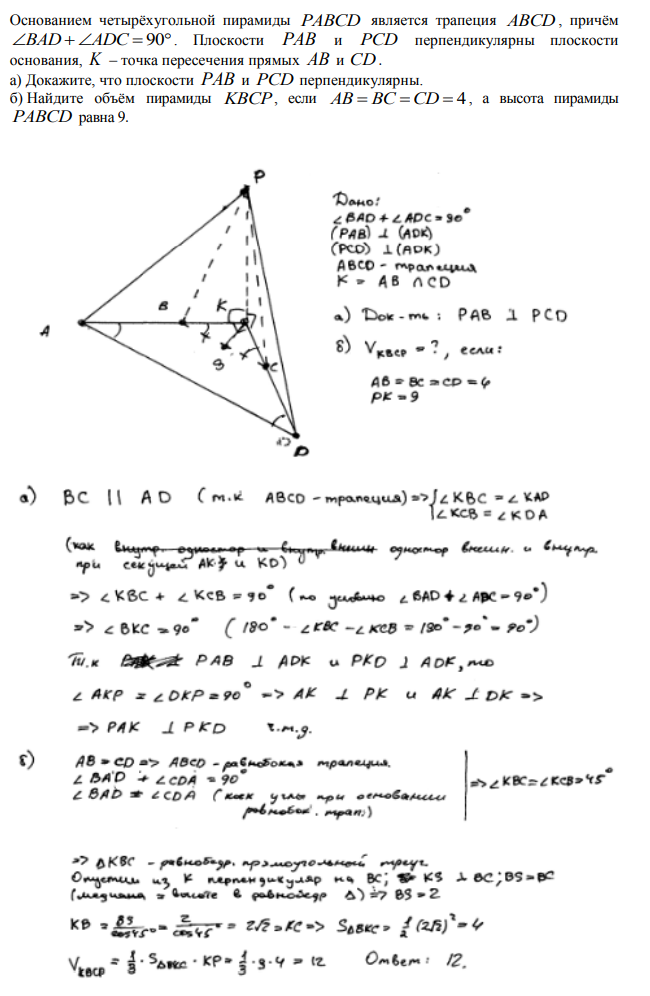 Основанием четырёхугольной пирамиды PABCD является трапеция ABCD, причём
∠BAD + ∠ADC = 90°. Плоскости PAB и PCD перпендикулярны плоскости
основания, K – точка пересечения прямых AB и CD.
а) Докажите, что плоскости PAB и PCD перпендикулярны.
б) Найдите объём пирамиды KBCP, если AB = BC = CD = 4, а высота пирамиды
PABCD равна 9.
P
A
B
K
S
C
D
Дано:
∠BAD + ∠ADC = 90°
(PAB) ⊥ (ADK)
(PCD) ⊥ (ADK)
ABCD – трапеция
K = AB ∩ CD
а) Док-ть: PAB ⊥ PCD
б) V KBCP = ?, если:
AB = BC = CD = 4
PK = 9
а) BC || AD (т.к ABCD – трапеция) => { ∠KBC = ∠KAD
∠KCB = ∠KDA
(как внутр. одностор и внутр. внешн одностор внешн. и внутр.
при секущей AK и KD)
=> ∠KBC + ∠KCB = 90° (по условию ∠BAD + ∠ADC = 90°)
=> ∠BKC = 90° (180° - ∠KBC - ∠KCB = 180° - 90° = 90°)
Т.к PAB ⊥ ADK и PKD ⊥ ADK, то
∠AKP = ∠DKP = 90° => AK ⊥ PK и AK ⊥ DK =>
=> PAK ⊥ PKD ч.т.д.
б) AB = CD => ABCD – равнобокая трапеция.
∠BAD + ∠CDA = 90°
∠BAD = ∠CDA (как углы при основании
равнобок. трап.)
=> ∠KBC = ∠KCB = 45°
=> ΔKBC – равнобедр. прямоугольный треуг.
Опустим из K перпендикуляр на BC; KS ⊥ BC; BS = BC
(медиана = высоте в равнобедр Δ) => BS = 2
KB = BS/cos45° = 2/cos45° = 2√2 = KC => SΔBKC = 1/2 (2√2)² = 4
V KBCP = 1/3 · SΔBKC · KP = 1/3 · 9 · 4 = 12 Ответ: 12.